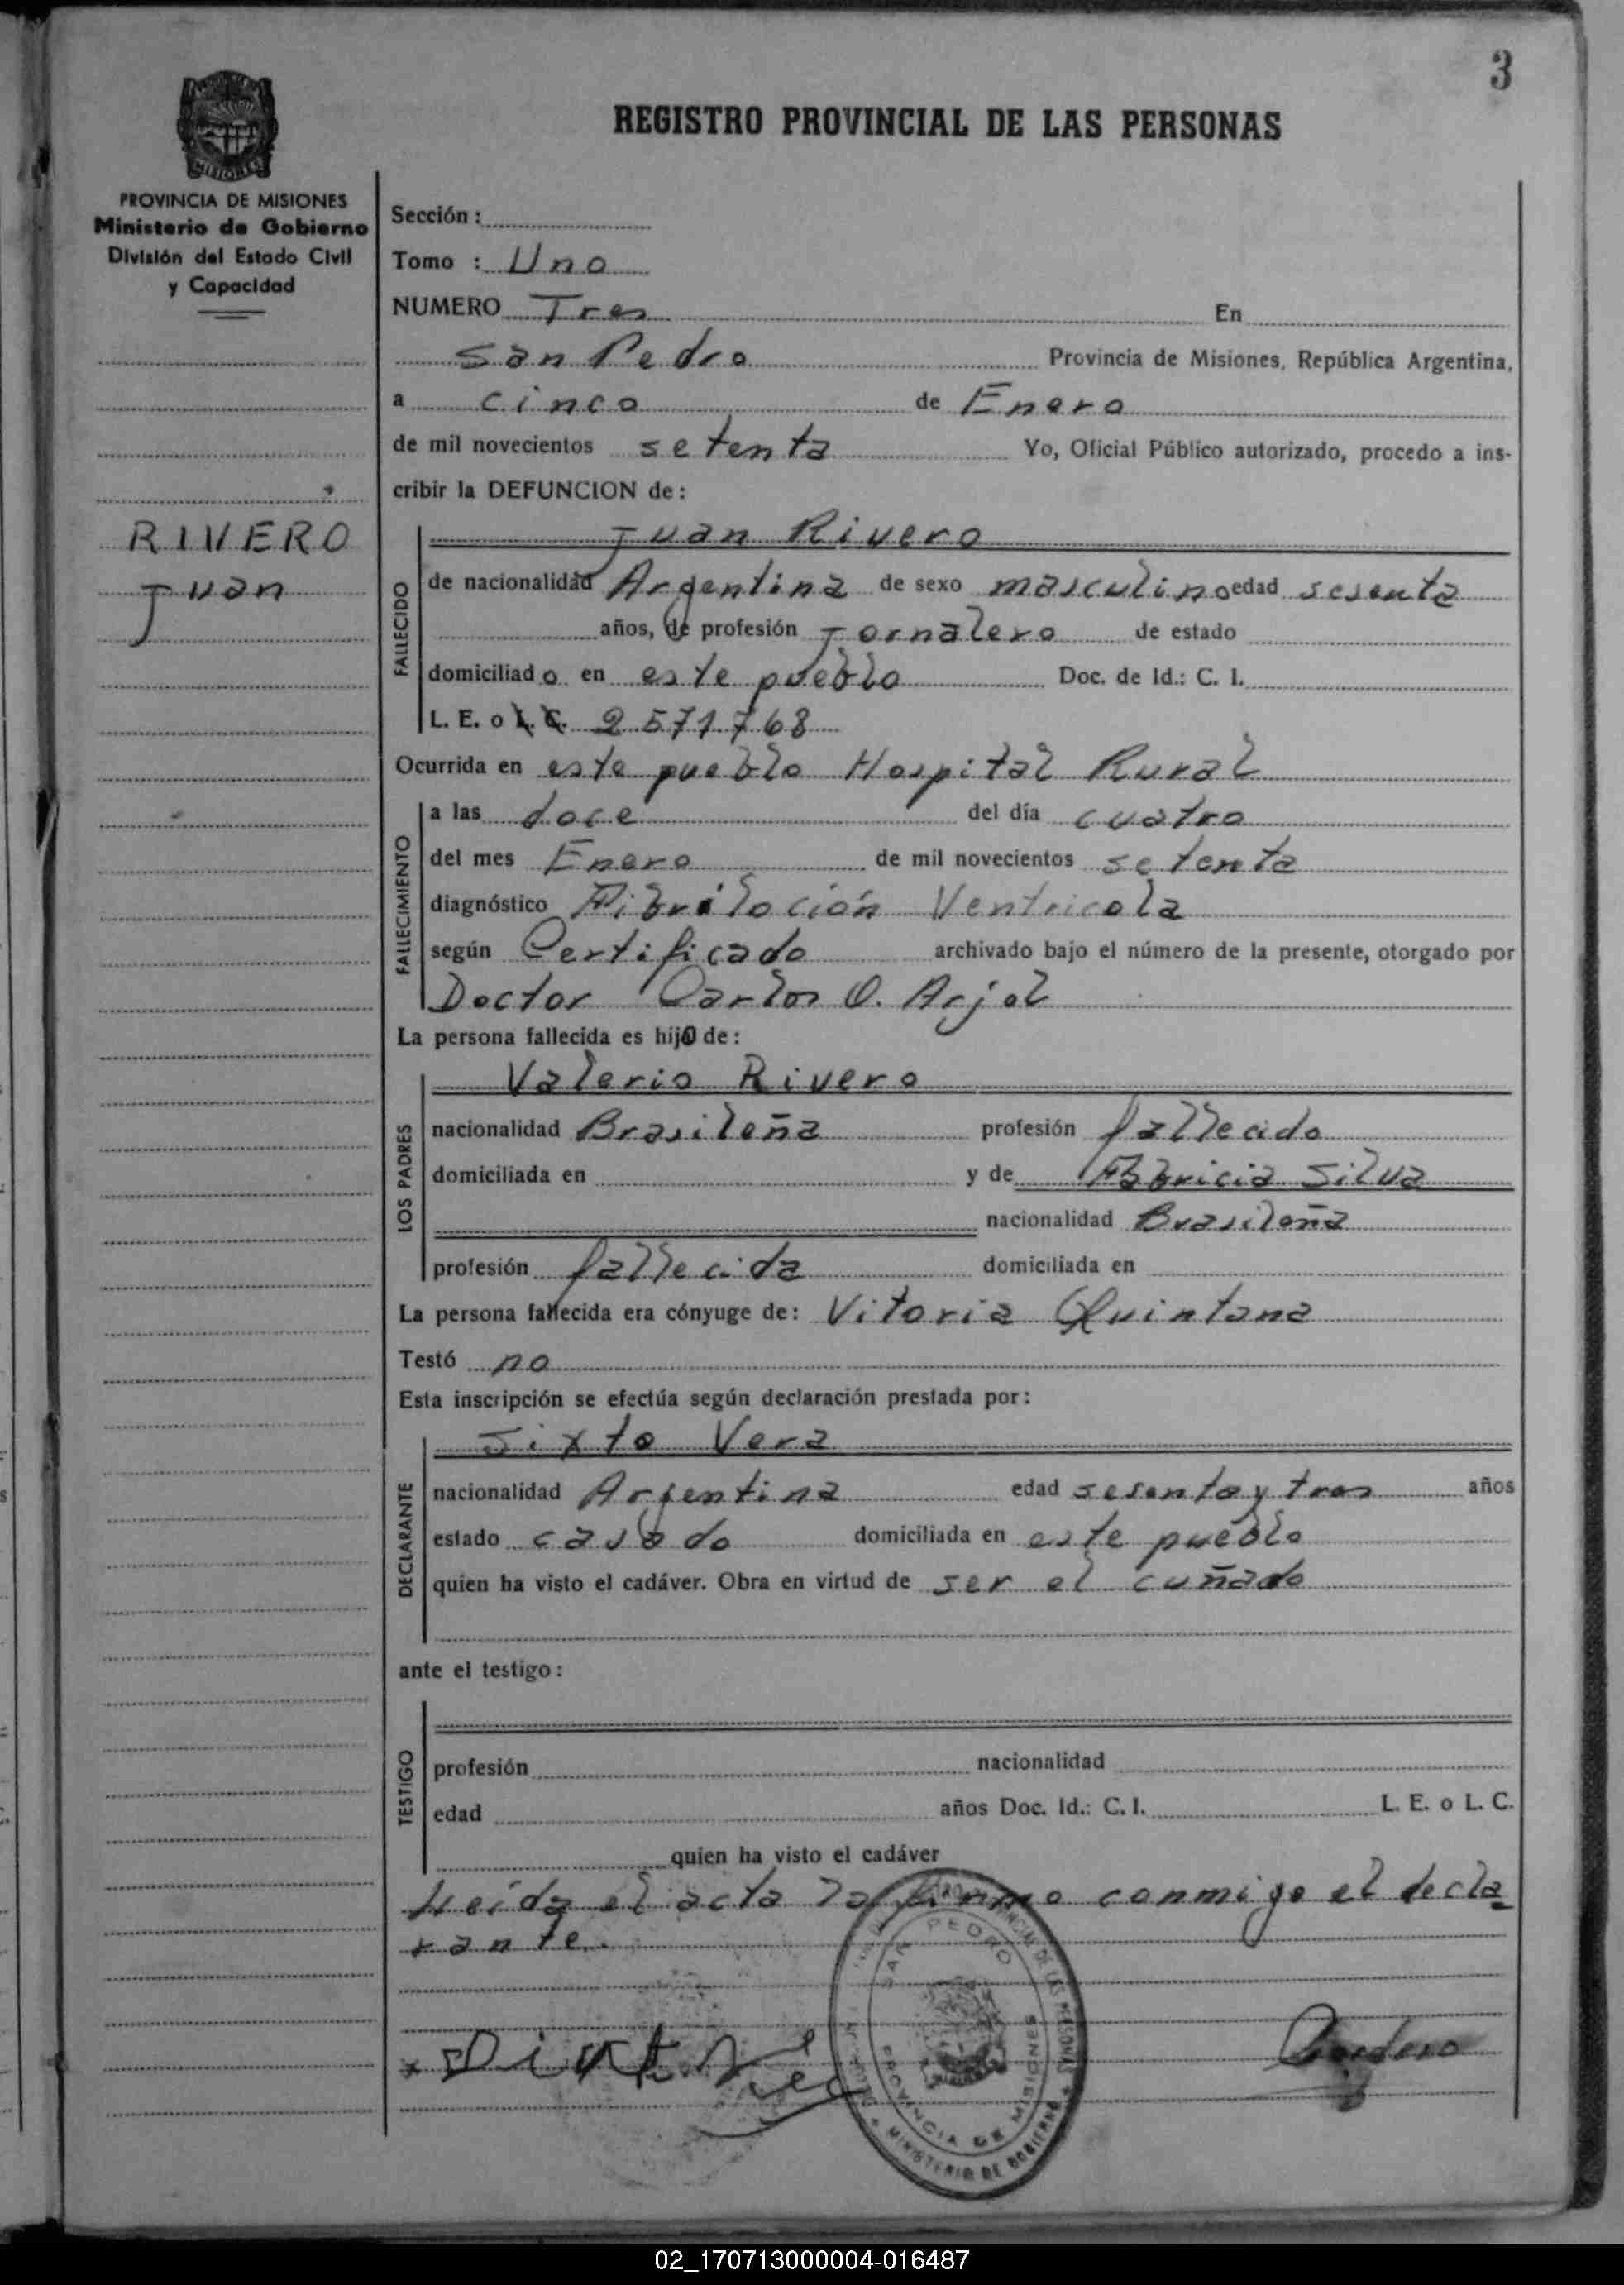 3
REGISTRO PROVINCIAL DE LAS PERSONAS
MISIONES
PROVINCIA DE MISIONES
Ministerio de Gobierno
División del Estado Civil
y Capacidad
RIVERO
Juan
Sección :
Tomo : Uno
NUMERO Tres En
San Pedro Provincia de Misiones, República Argentina,
a cinco de Enero
de mil novecientos setenta Yo, Oficial Público autorizado, procedo a ins-
cribir la DEFUNCION de :
FALLECIDO
Juan Rivero
de nacionalidad Argentina de sexo masculino edad sesenta
años, de profesión Jornalero de estado
domiciliado en este pueblo Doc. de Id.: C. I.
L. E. o L. C. 2571768
Ocurrida en este pueblo Hospital Rural
FALLECIMIENTO
a las doce del día cuatro
del mes Enero de mil novecientos setenta
diagnóstico Fibrilación Ventricola
según Certificado archivado bajo el número de la presente, otorgado por
Doctor Carlos O. Arjol
La persona fallecida es hijo de :
LOS PADRES
Valerio Rivero
nacionalidad Brasileña profesión fallecido
domiciliada en y de Fabricia Silva
nacionalidad Brasileña
profesión fallecida domiciliada en
La persona fallecida era cónyuge de : Vitoria Quintana
Testó no
Esta inscripción se efectúa según declaración prestada por :
DECLARANTE
Sixto Vera
nacionalidad Argentina edad sesenta y tres años
estado casado domiciliada en este pueblo
quien ha visto el cadáver. Obra en virtud de ser el cuñado
ante el testigo :
TESTIGO
profesión nacionalidad
edad años Doc. Id.: C. I. L. E. o L. C.
quien ha visto el cadáver
Leída el acta la firma conmigo el decla
rante.
SAN PEDRO
PROVINCIA DE MISIONES
MINISTERIO DE GOBIERNO
02_170713000004-016487